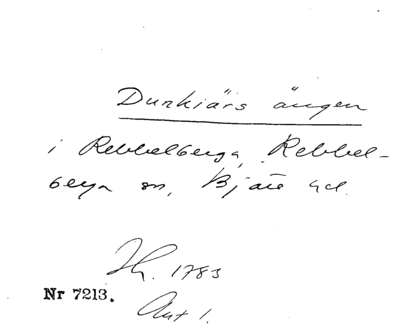 Dunkiärs ängen
i Rebbelberga, Rebbel-
berga sn, Bjäre hd.
Ih. 1783
Nr 7213.
Akt 1.